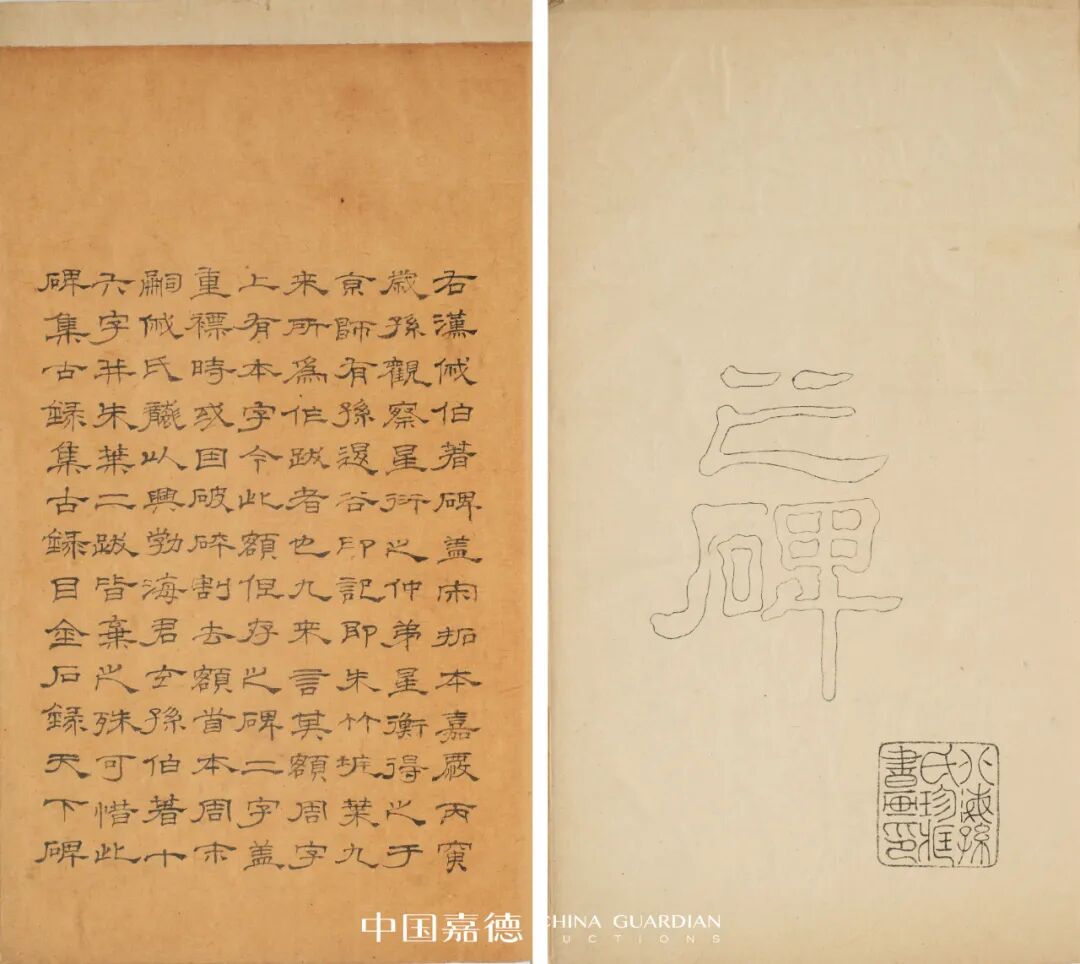 右漢伯著碑蓋宋拓本嘉慶丙寅
歲孫觀察星衍之仲弟星衡得之于
京師有孫退谷印記即朱竹垞葉九
來所為作跋者也九來言其額周字
上有本字今此額但存之碑二字蓋
重褾時或因破碎割去額首本周末
嗣氏以興勃海君玄孫伯著十
六字并朱葉二跋皆棄之殊可惜此
碑集古録集古録目金石録天下碑
之碑
北海孫
氏珍藏
書畫印
中国嘉德
CHINA GUARDIAN
AUCTIONS